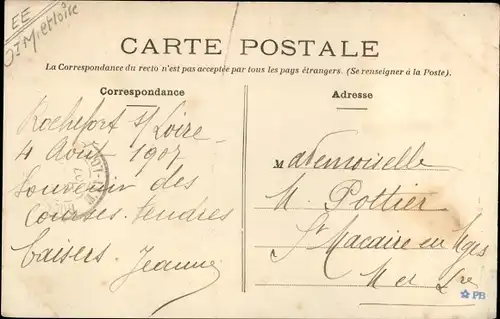 EE
Met Loire
CARTE POSTALE
La Correspondance du recto n'est pas acceptée par tous les pays étrangers. (Se renseigner à la Poste).
Correspondance
Adresse
Rochefort s/ Loire
4 Août 1907
Souvenir des
Courses. Tendres
baisers. Jeanne
Mademoiselle
M. Pottier
St Macaire en Mges
M et Lre
PB